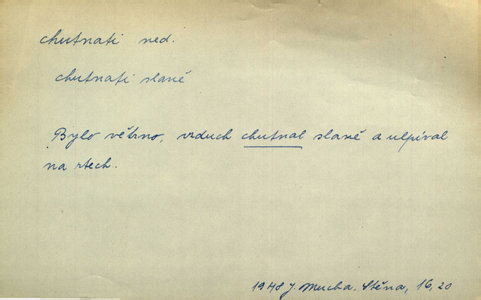 chutnati ned.
chutnati slaně
Bylo větrno, vzduch chutnal slaně a ulpíval
na rtech.
1948 J. Mucha. Stěna, 16,20